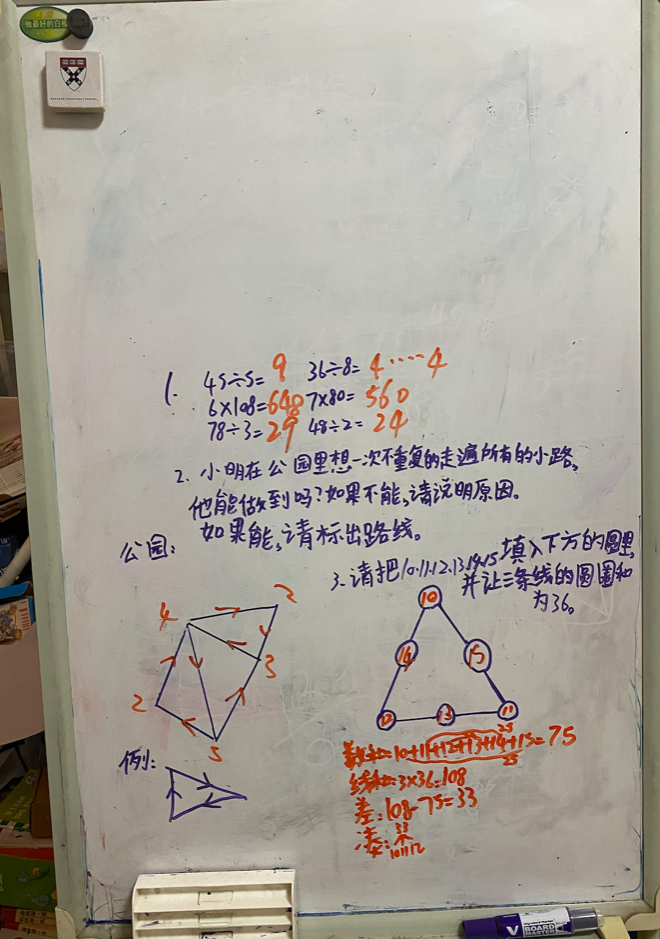 做最好的白板
1. 45÷5=9 36÷8=4····4
6×108=648 7×80=560
78÷3=29 48÷2=24
2. 小明在公园里想一次不重复的走遍所有的小路,
他能做到吗?如果不能,请说明原因。
如果能,请标出路线。
公园:
3. 请把10.11.12.13.14.15填入下方的圆里,
并让三条线的圆圈和
为36。
4 2
3
2
5
例:
10
14 15
12 13 11
数和:10+11+12+13+14+15=75
25
25
线和:3×36=108
差:108-75=33
凑:33
10 11 12
V BOARD MASTER